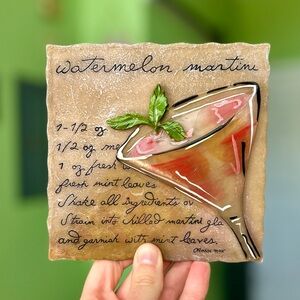 watermelon martini
1-1/2 oz
1/2 oz me
1 oz fresh
fresh mint leaves
Shake all ingredients
Strain into chilled martini gla
and garnish with mint leaves